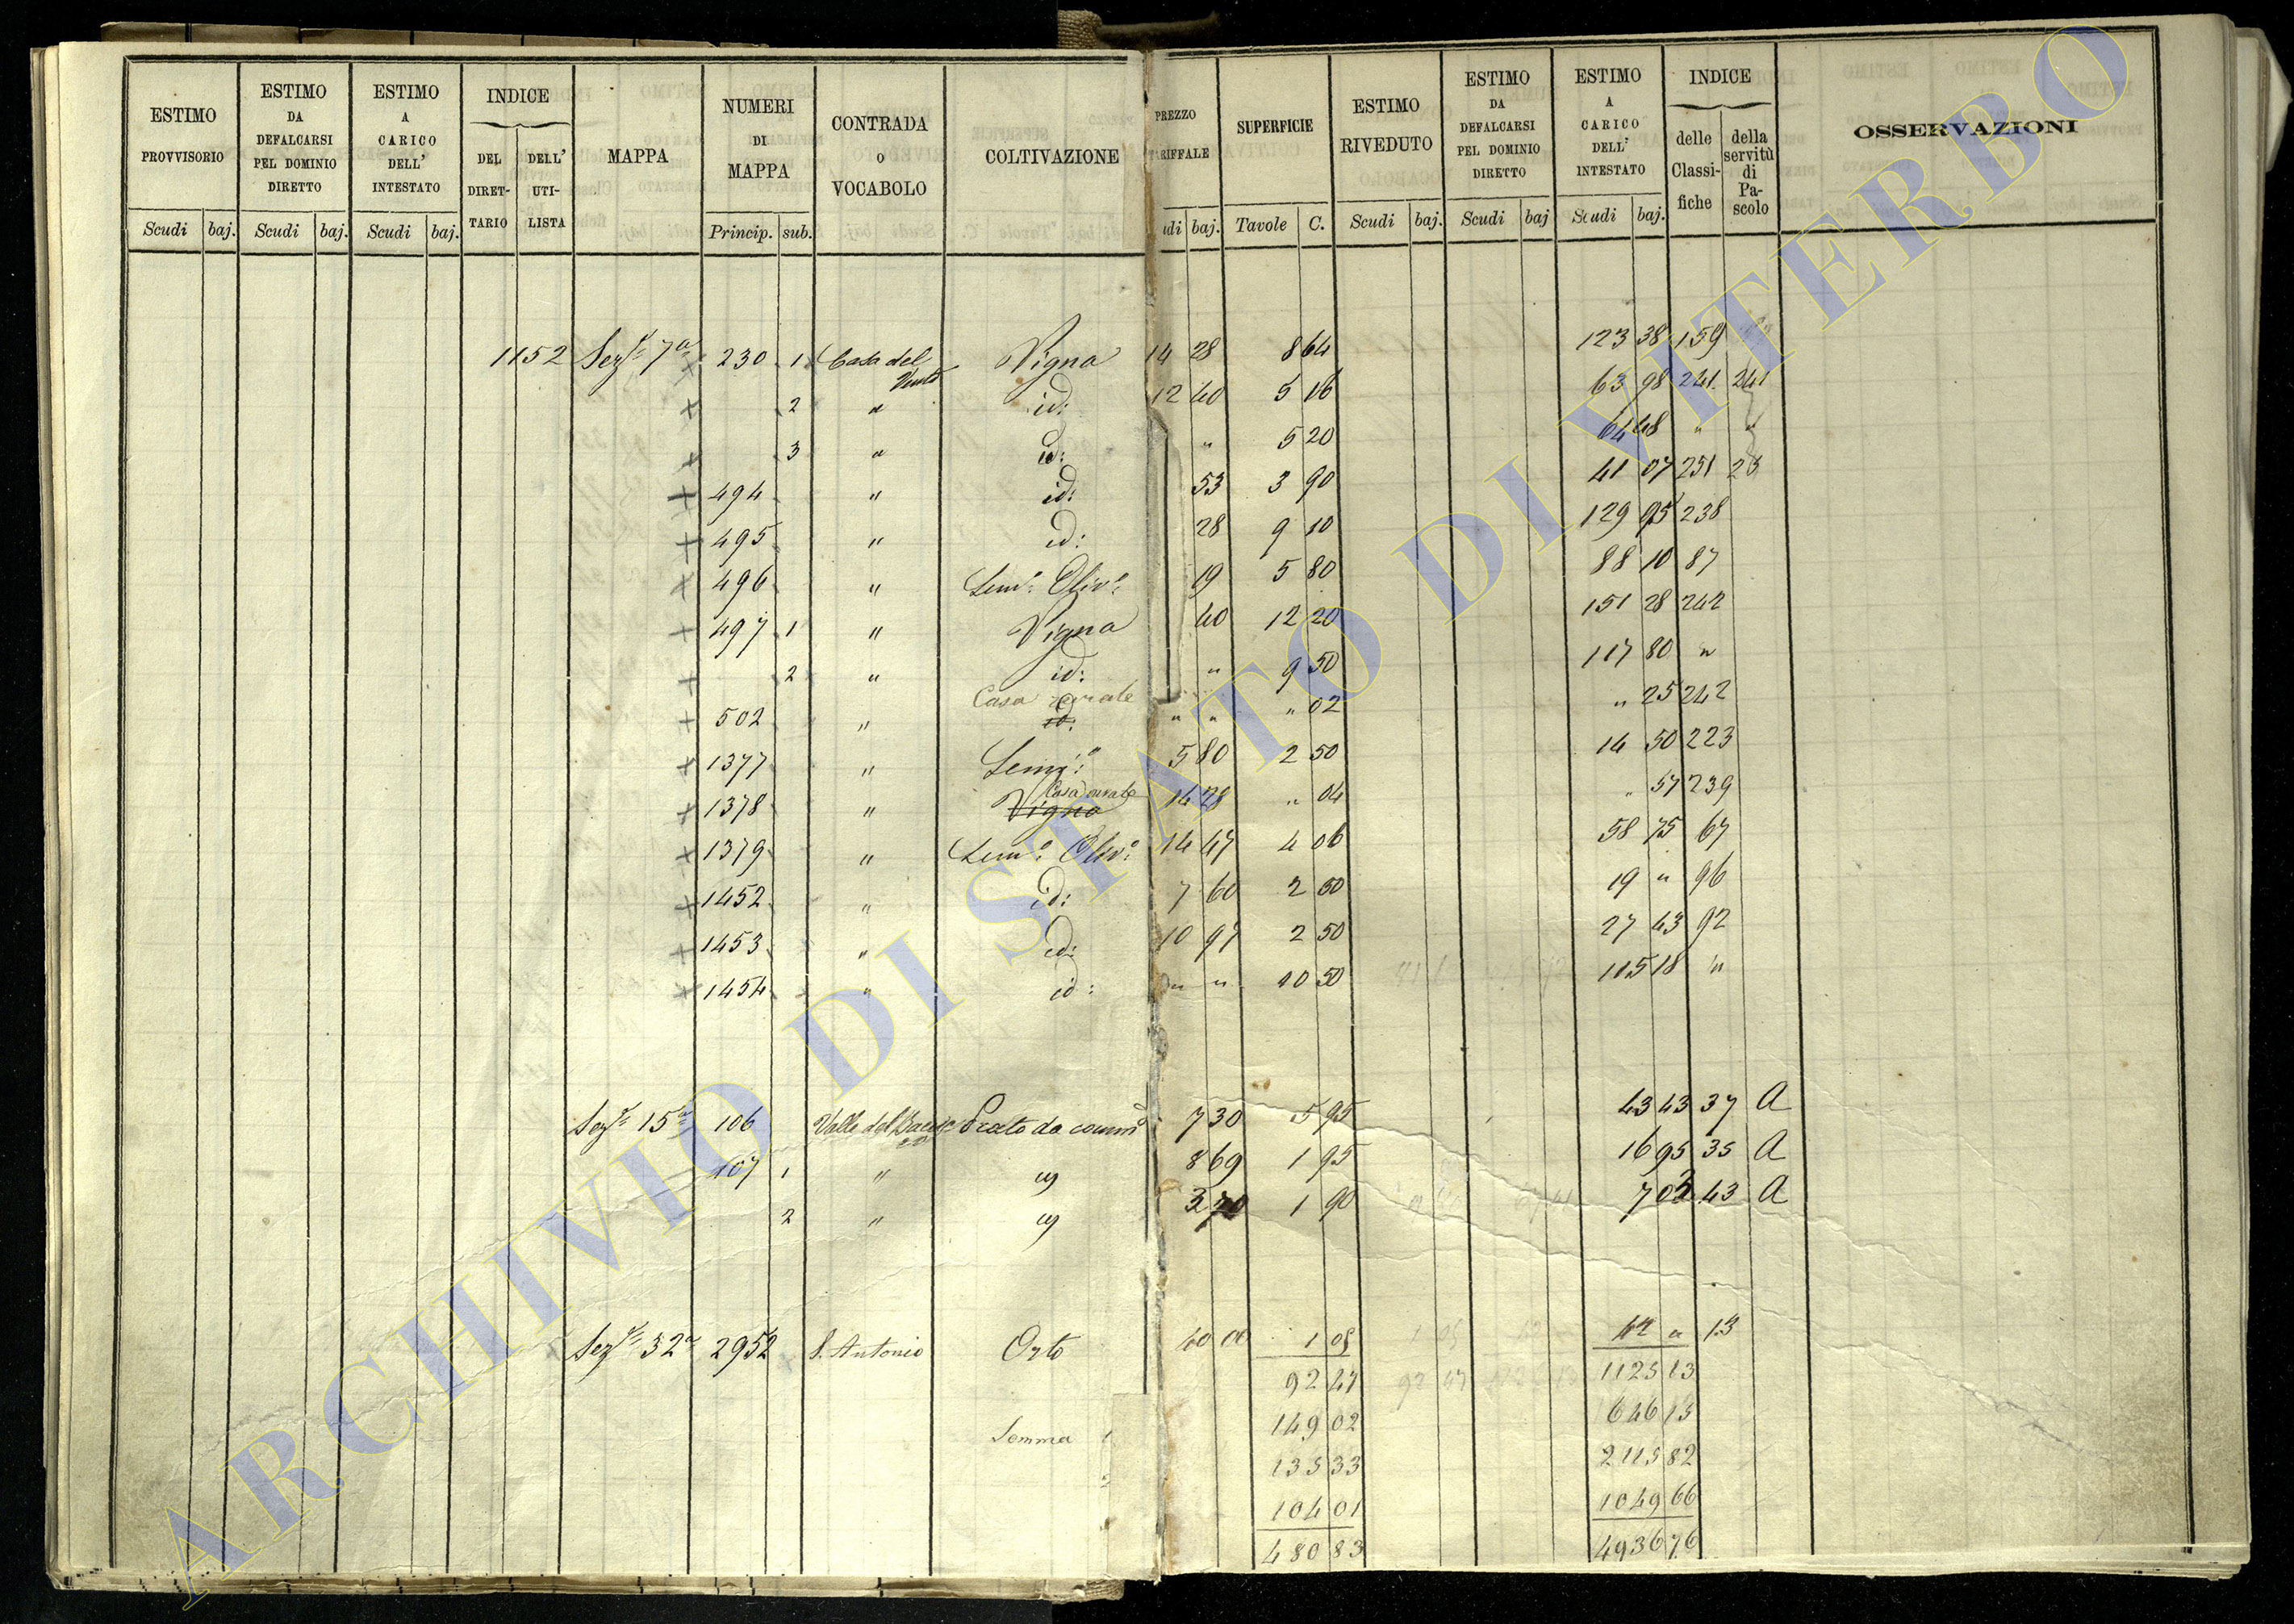 ESTIMO PROVVISORIO Scudi baj.
ESTIMO DA DEFALCARSI PEL DOMINIO DIRETTO Scudi baj.
ESTIMO A CARICO DELL' INTESTATO Scudi baj.
INDICE DEL DIRETTARIO DELL' UTILISTA
MAPPA
NUMERI DI MAPPA Princip. sub.
CONTRADA O VOCABOLO
COLTIVAZIONE
PREZZO TARIFFALE udi baj.
SUPERFICIE Tavole C.
ESTIMO RIVEDUTO Scudi baj.
ESTIMO DA DEFALCARSI PEL DOMINIO DIRETTO Scudi baj
ESTIMO A CARICO DELL' INTESTATO Scudi baj.
INDICE delle Classifiche della servitù di Pascolo
OSSERVAZIONI
1152 Sez.e 7a + 230 1 Casa del Vento Vigna 14 28 8 64 123 38 159
+ 2 " id: 12 40 5 16 63 98 241 241
+ 3 " id: " 5 20 64 48 " "
+ 494 " id: 53 3 90 41 07 251 25
+ 495 " id: 28 9 10 129 95 238
+ 496 " Sem.o Oliv.o 19 5 80 88 10 87
+ 497 1 " Vigna 40 12 20 151 28 242
+ 2 " id: " 9 50 117 80 "
+ 502 " Casa rurale id: " " " 02 " 25 242
+ 1377 " Sem.o 5 80 2 50 14 50 223
+ 1378 " Casa rurale Vigna 14 28 " 04 " 57 239
+ 1379 " Sem.o Oliv.o 14 47 4 06 58 75 67
+ 1452 " id: 7 60 2 50 19 " 96
+ 1453 " id: 10 97 2 50 27 43 92
+ 1454 " id: " " 10 50 115 18 "
Sez.e 15a 106 Valle del Prato da 7 30 5 95 43 43 37 A
107 1 " 8 69 1 95 16 95 35 A
2 " 3 70 1 90 7 03 43 A
Sez.e 32a 2952 S. Antonio Orto 40 00 1 05 42 " 13
92 47 1125 13
Somma 149 02 646 15
135 33 2115 82
104 01 1049 66
480 83 4936 76
ARCHIVIO DI STATO DI VITERBO